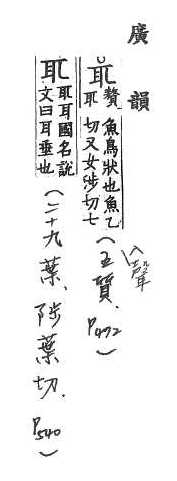 廣韻
耴 聱耴魚鳥狀也魚乙
切又女涉切七
(五質. P472)
入聲
耴 耴耳國名說
文曰耳垂也
(二十九葉. 陟葉切. P540)